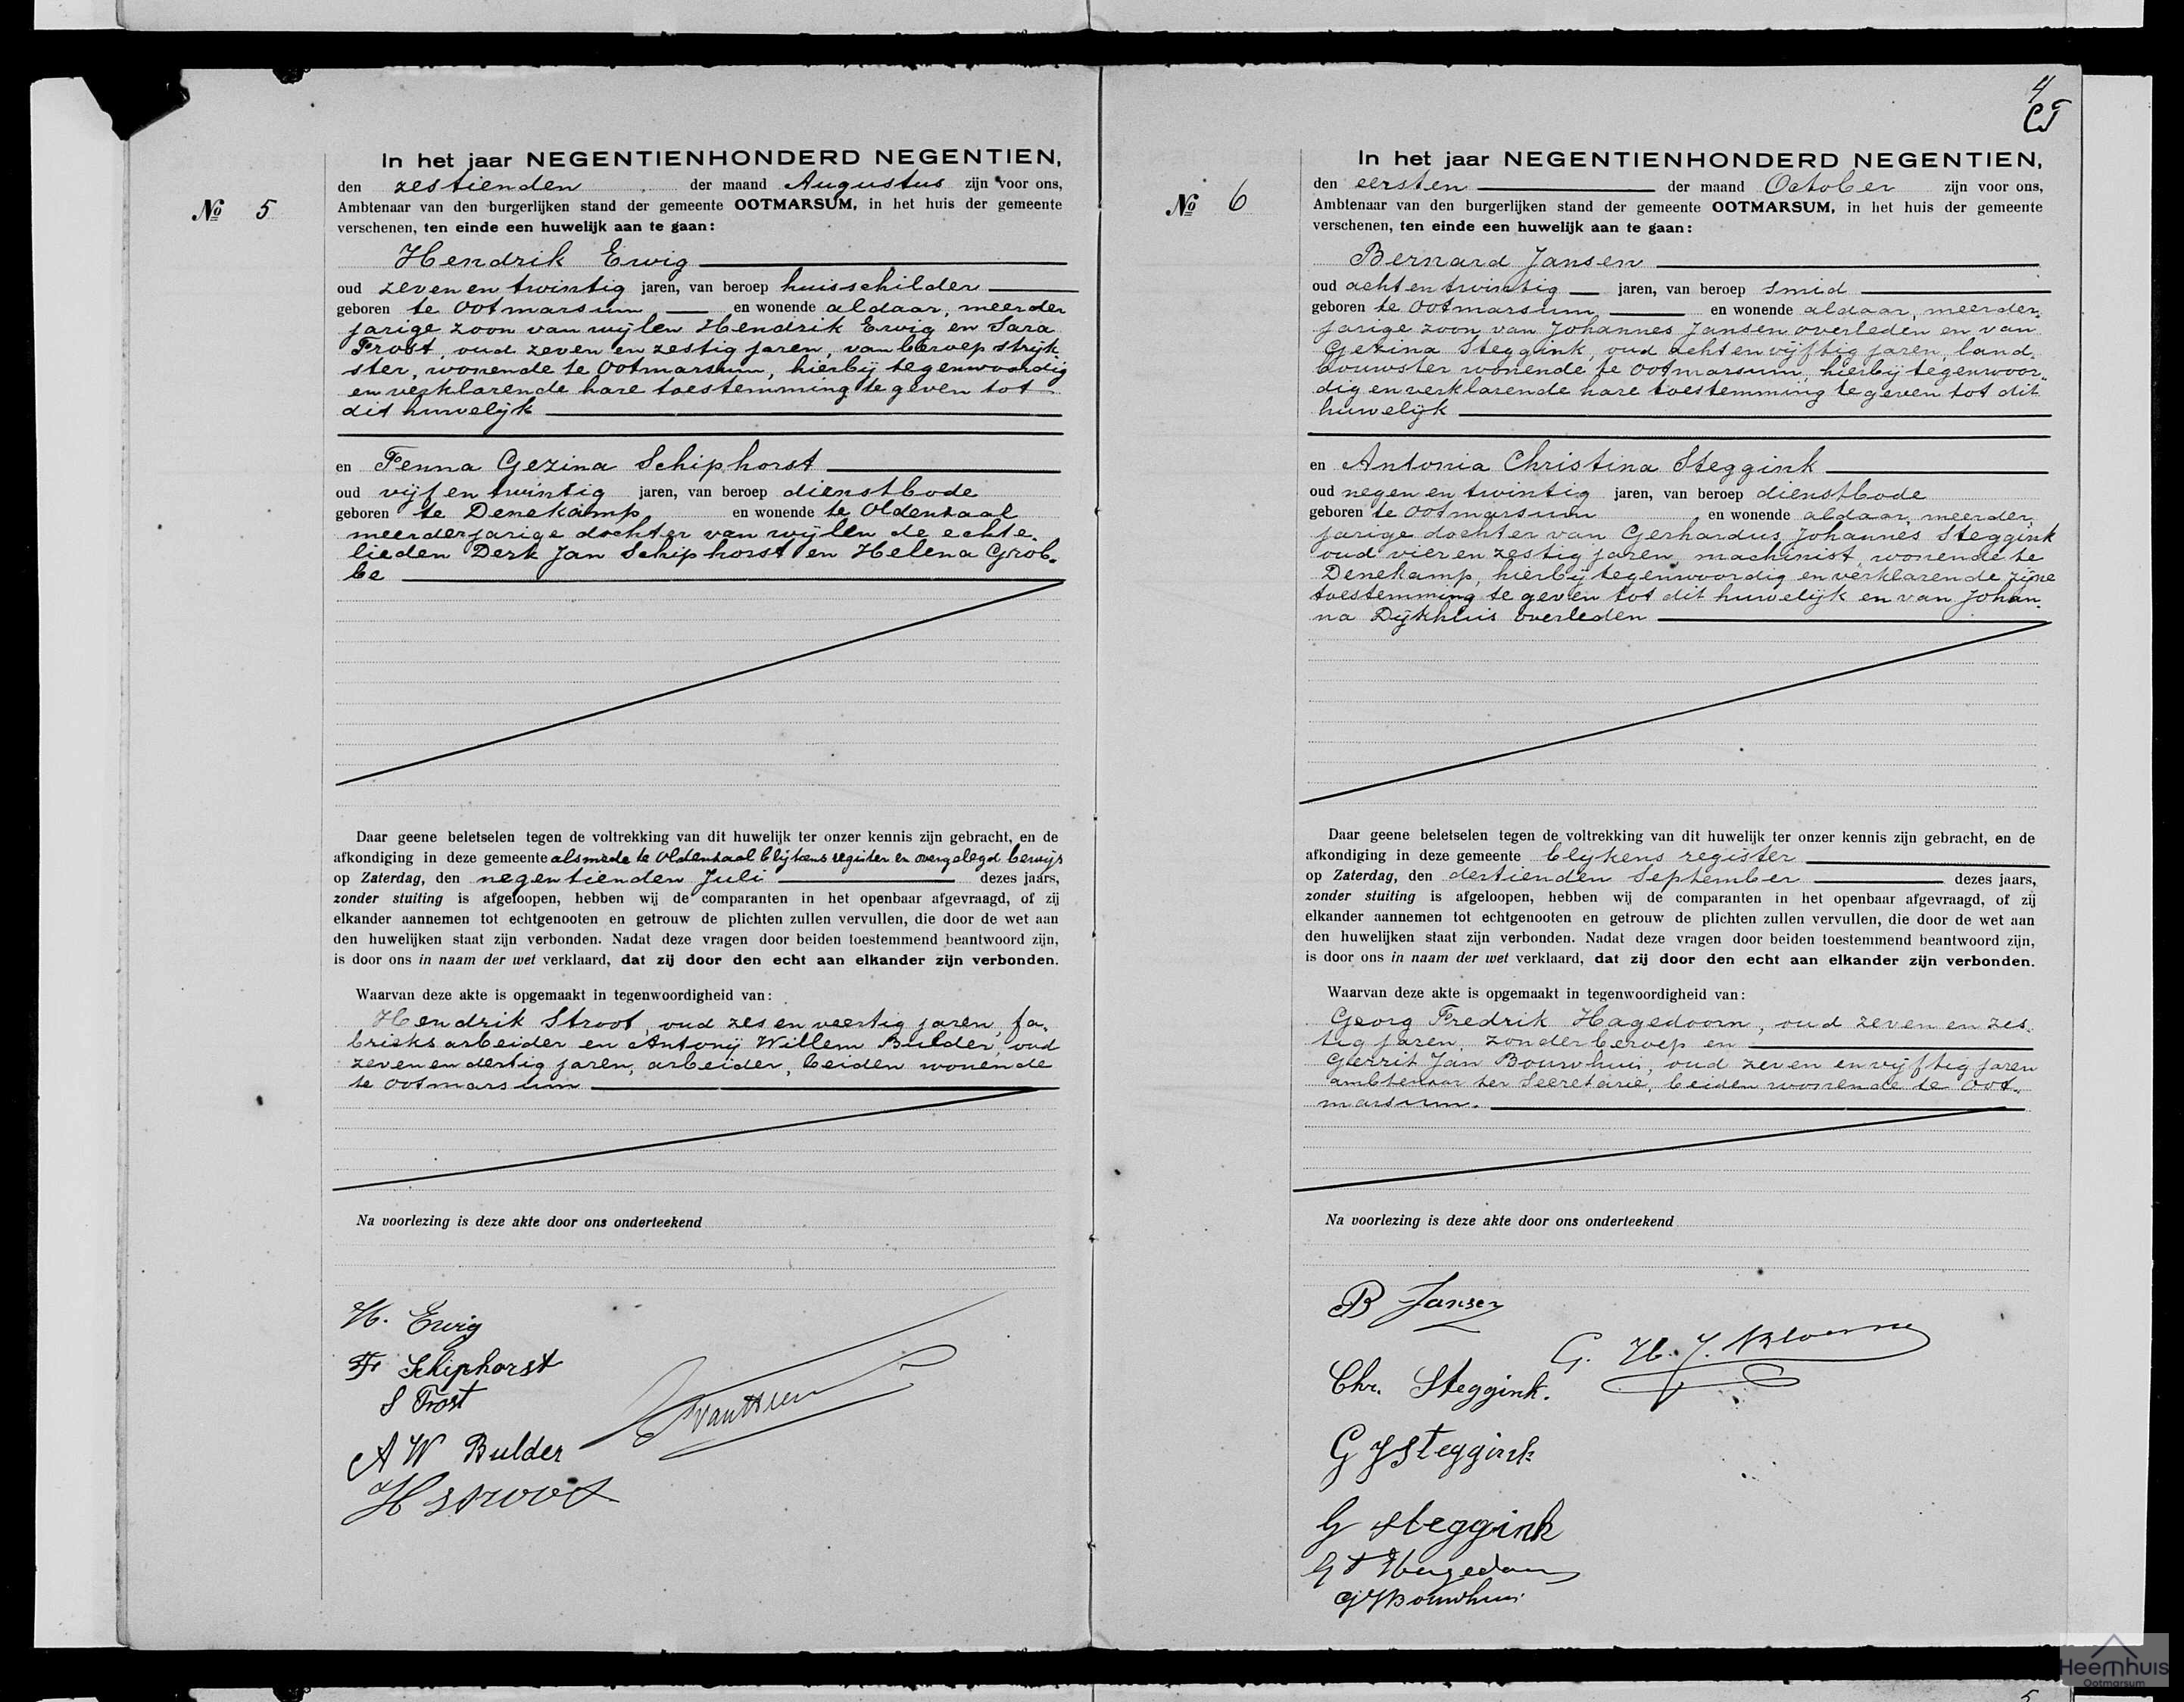 No 5
In het jaar NEGENTIENHONDERD NEGENTIEN,
den zestienden der maand Augustus zijn voor ons,
Ambtenaar van den burgerlijken stand der gemeente OOTMARSUM, in het huis der gemeente
verschenen, ten einde een huwelijk aan te gaan:
Hendrik Ewig
oud zeven en twintig jaren, van beroep huisschilder
geboren te Ootmarsum en wonende aldaar, meerder
jarige zoon van wijlen Hendrik Ewig en Sara
Frost, oud zeven en zestig jaren, van beroep strijk-
ster, wonende te Ootmarsum, hierbij tegenwoordig
en verklarende hare toestemming te geven tot
dit huwelijk
en Fenna Gezina Schiphorst
oud vijf en twintig jaren, van beroep dienstbode
geboren te Denekamp en wonende te Oldenzaal
meerderjarige dochter van wijlen de echte-
lieden Derk Jan Schiphorst en Helena Grob-
be
Daar geene beletselen tegen de voltrekking van dit huwelijk ter onzer kennis zijn gebracht, en de
afkondiging in deze gemeente alsmede te Oldenzaal blijkens register en overgelegd bewijs
op Zaterdag, den negentienden Juli dezes jaars,
zonder stuiting is afgeloopen, hebben wij de comparanten in het openbaar afgevraagd, of zij
elkander aannemen tot echtgenooten en getrouw de plichten zullen vervullen, die door de wet aan
den huwelijken staat zijn verbonden. Nadat deze vragen door beiden toestemmend beantwoord zijn,
is door ons in naam der wet verklaard, dat zij door den echt aan elkander zijn verbonden.
Waarvan deze akte is opgemaakt in tegenwoordigheid van:
Hendrik Stroot, oud zes en veertig jaren, fa-
brieksarbeider en Antonij Willem Bulder, oud
zeven en dertig jaren, arbeider, beiden wonende
te Ootmarsum
Na voorlezing is deze akte door ons onderteekend
H. Ewig
F Schiphorst
S Frost
A W Bulder
H Stroot
4
No 6
In het jaar NEGENTIENHONDERD NEGENTIEN,
den eersten der maand October zijn voor ons,
Ambtenaar van den burgerlijken stand der gemeente OOTMARSUM, in het huis der gemeente
verschenen, ten einde een huwelijk aan te gaan:
Bernard Jansen
oud acht en twintig jaren, van beroep smid
geboren te Ootmarsum en wonende aldaar, meerder-
jarige zoon van Johannes Jansen overleden en van
Gezina Steggink, oud acht en vijftig jaren, land-
bouwster wonende te Ootmarsum, hierbij tegenwoor-
dig en verklarende hare toestemming te geven tot dit
huwelijk
en Antonia Christina Steggink
oud negen en twintig jaren, van beroep dienstbode
geboren te Ootmarsum en wonende aldaar, meerder-
jarige dochter van Gerhardus Johannes Steggink
oud vier en zestig jaren, machinist, wonende te
Denekamp, hierbij tegenwoordig en verklarende zijne
toestemming te geven tot dit huwelijk en van Johan-
na Dijkhuis overleden
Daar geene beletselen tegen de voltrekking van dit huwelijk ter onzer kennis zijn gebracht, en de
afkondiging in deze gemeente blijkens register
op Zaterdag, den dertienden September dezes jaars,
zonder stuiting is afgeloopen, hebben wij de comparanten in het openbaar afgevraagd, of zij
elkander aannemen tot echtgenooten en getrouw de plichten zullen vervullen, die door de wet aan
den huwelijken staat zijn verbonden. Nadat deze vragen door beiden toestemmend beantwoord zijn,
is door ons in naam der wet verklaard, dat zij door den echt aan elkander zijn verbonden.
Waarvan deze akte is opgemaakt in tegenwoordigheid van:
Georg Fredrik Hagedoorn, oud zeven en zes-
tig jaren, zonder beroep en
Gerrit Jan Bouwhuis, oud zeven en vijftig jaren
ambtenaar ter Secretarie, beiden wonende te Oot-
marsum.
Na voorlezing is deze akte door ons onderteekend
B Jansen
G. H. J.
Chr. Steggink.
G J Steggink
G Steggink
G F Hagedoorn
G J Bouwhuis
Heemhuis
Ootmarsum